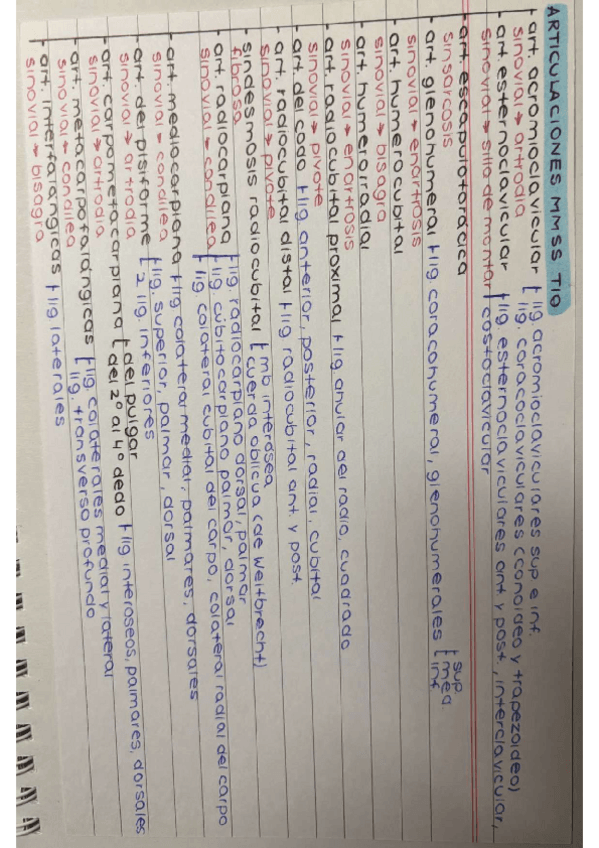 ARTICULACIONES MMSS T10
- art. acromioclavicular { lig. acromioclaviculares sup e inf.
sinovial → artrodia lig. coracoclaviculares (conoideo y trapezoideo)
- art. esternoclavicular { lig. esternoclaviculares ant y post, interclavicular,
sinovial → silla de montar costoclavicular
- art. escapulotorácica
sinsarcosis
- art. glenohumeral { lig. coracohumeral, glenohumerales { sup
med
inf
sinovial → enartrosis
- art. humerocubital
sinovial → bisagra
- art. humerorradial
sinovial → enartrosis
- art. radiocubital proximal { lig anular del radio, cuadrado
sinovial → pivote
- art. del codo { lig anterior, posterior, radial, cubital
- art. radiocubital distal { lig radiocubital ant y post.
sinovial → pivote
- sindesmosis radiocubital { mb interósea
fibrosa cuerda oblicua (de Weitbrecht)
- art. radiocarpiana { lig. radiocarpiano dorsal, palmar
sinovial → condílea lig. cúbitocarpiano palmar, dorsal
lig. colateral cubital del carpo, colateral radial del carpo
- art. mediocarpiana { lig colateral medial, palmares, dorsales
sinovial → condílea
- art. del pisiforme { lig. superior, palmar, dorsal
sinovial → artrodia 2 lig. inferiores
- art. carpometacarpiana { del pulgar
sinovial → artrodia del 2º al 4º dedo { lig interoseos, palmares, dorsales
- art. metacarpofalángicas { lig. colaterales medial y lateral
sinovial → condílea lig. transverso profundo
- art. interfalángicas { lig laterales
sinovial → bisagra